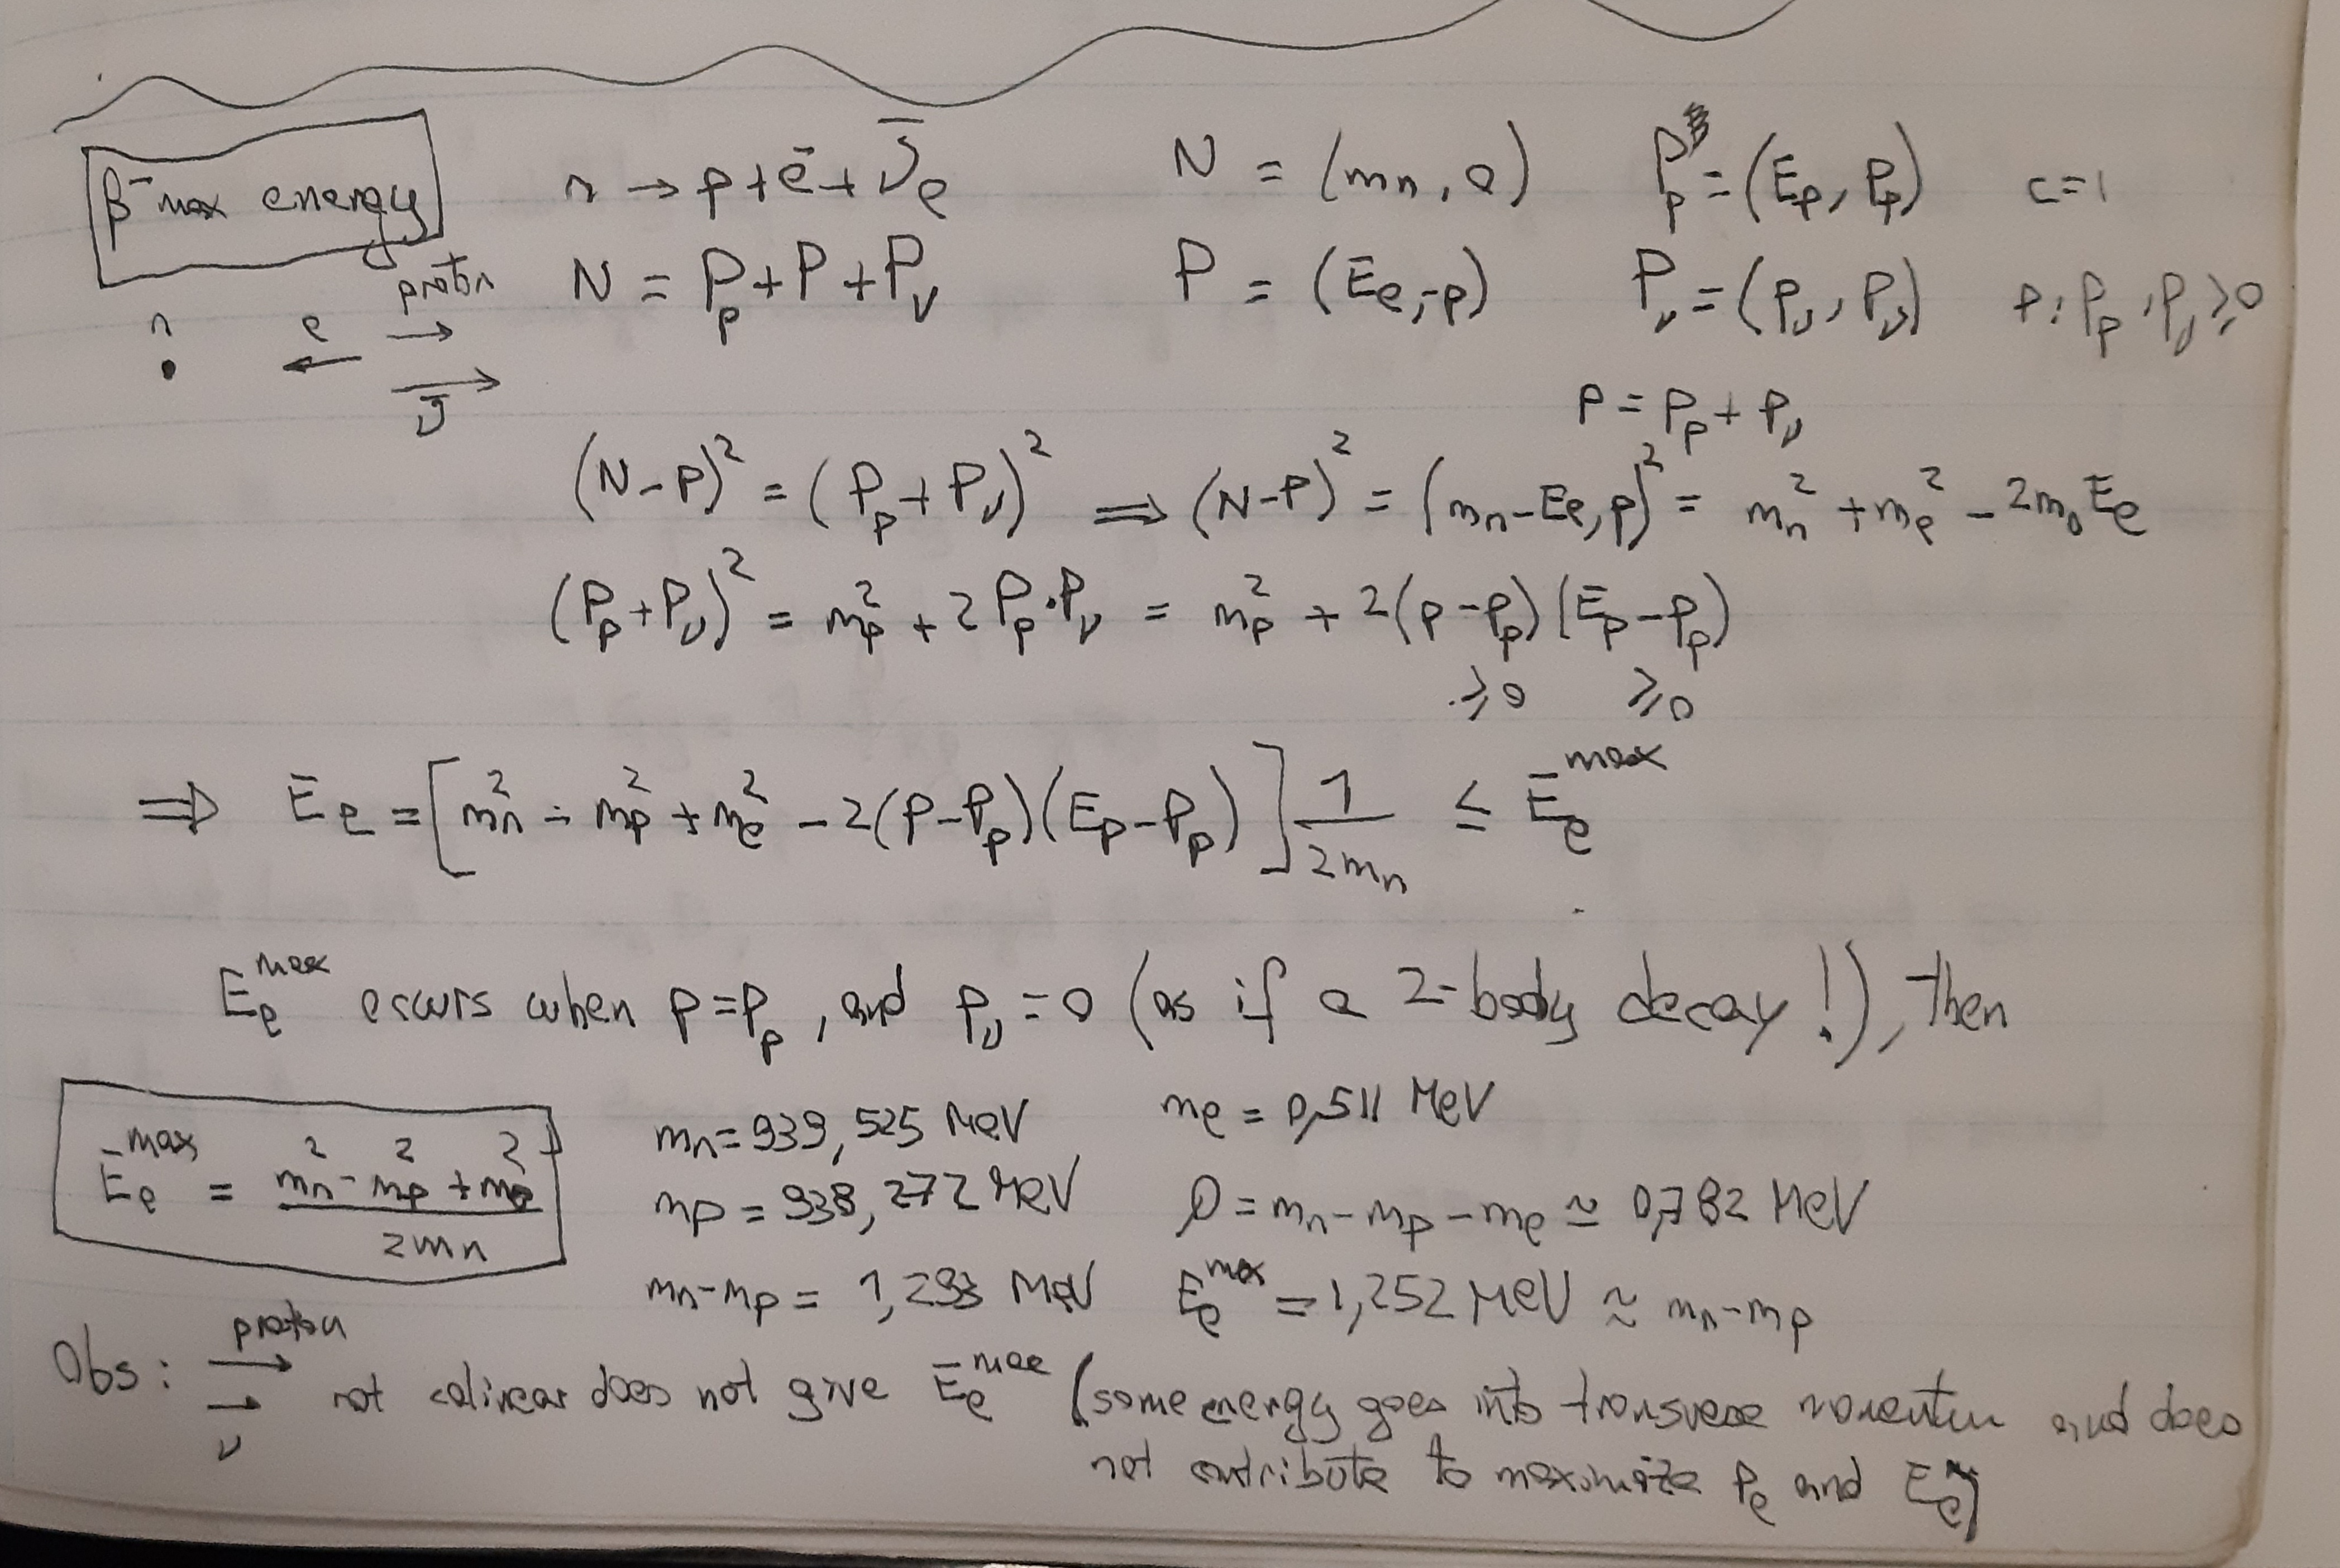 β⁻ max energy
n → p + e⁻ + ν̄_e   N = (m_n, 0)   P_p = (E_p, p_p)   c=1
N = P_p + P + P_ν   P = (E_e, -p)   P_ν = (p_ν, p_ν)   p, p_p, p_ν ≥ 0
n   e   proton
ν̄
p = p_p + p_ν
(N-P)² = (P_p + P_ν)² ⟹ (N-P)² = (m_n - E_e, p)² = m_n² + m_e² - 2m_n E_e
(P_p + P_ν)² = m_p² + 2 P_p · P_ν = m_p² + 2(p - p_p)(E_p - p_p)
≥0   ≥0
⟹ E_e = [m_n² - m_p² + m_e² - 2(p - p_p)(E_p - p_p)] 1/2m_n ≤ E_e^max
E_e^max occurs when p = p_p, and p_ν = 0 (as if a 2-body decay!), then
E_e^max = (m_n² - m_p² + m_e²)/2m_n
m_n = 939,525 MeV   m_e = 0,511 MeV
m_p = 938,272 MeV   Q = m_n - m_p - m_e ≃ 0,782 MeV
m_n - m_p = 1,293 MeV   E_e^max = 1,252 MeV ≈ m_n - m_p
Obs: proton → → ν not colinear does not give E_e^max (some energy goes into transverse momentum and does
not contribute to maximize p_e and E_e)